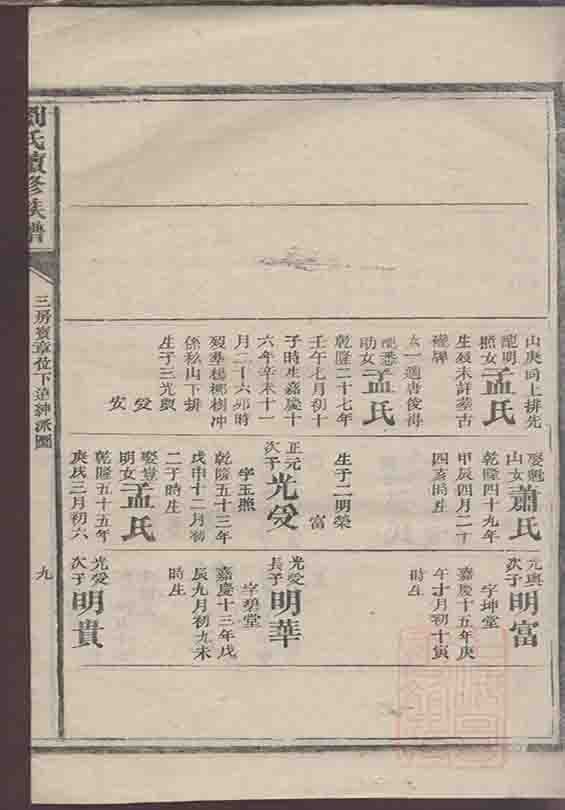 山庚向上排先
配明
照女
孟氏
生歿未詳墓古
碓牌
女一適唐俊得
配悉
助女
孟氏
乾隆二十七年
壬午七月初十
子時生嘉慶十
六年辛未十一
月二十六卯時
歿塟楊櫛樹冲
係私山下排
生子三光輿
受
安
娶魁
山女
蕭氏
乾隆四十九年
甲辰四月二十
四亥時生
生子二明榮
富
正元
次子
光受
字玉照
乾隆五十三年
戊申十二月初
二子時生
娶豈
明女
孟氏
乾隆五十五年
庚戌三月初六
光輿
次子
明富
字坤堂
嘉慶十五年庚
午十月初十寅
時生
光受
長子
明華
字碧堂
嘉慶十三年戊
辰九月初九未
時生
光受
次子
明貴
劉氏續修族譜
三房賓章位下達紳派圖
九